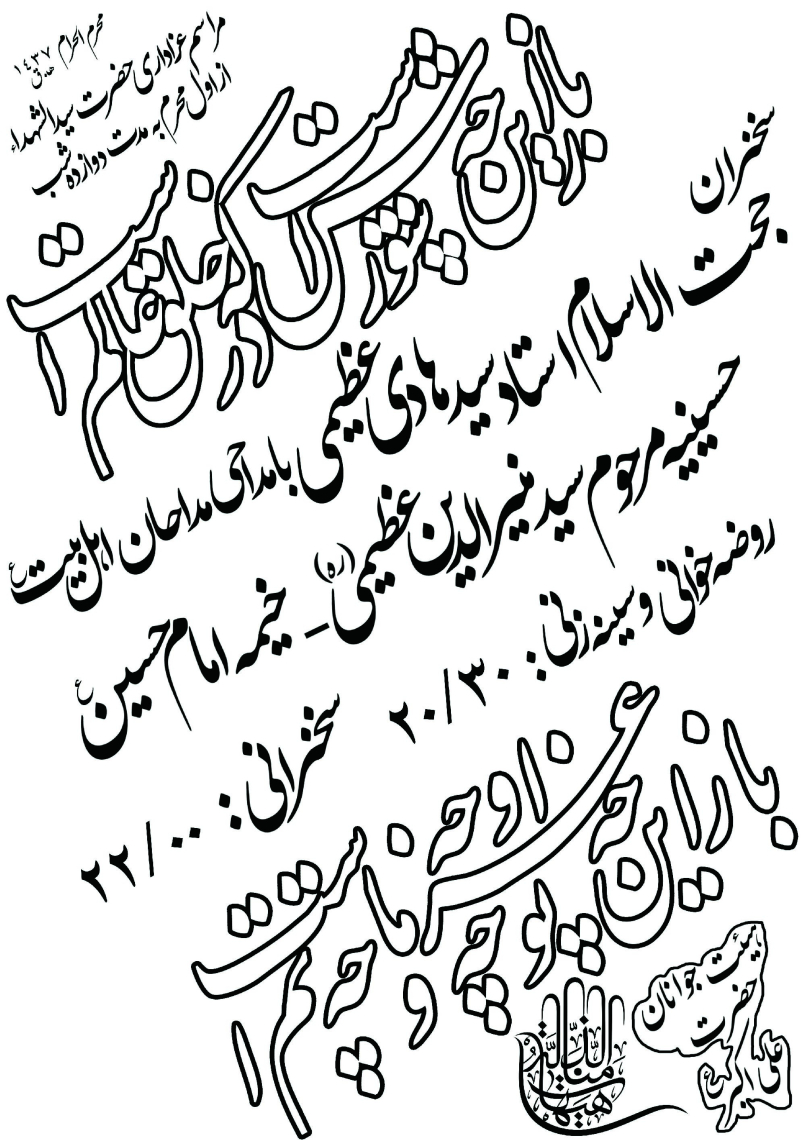 محرم الحرام ۱۴۳۷ هـ.ق
مراسم عزاداری حضرت سیدالشهداء
از اول محرم به مدت دوازده شب
باز این چه شورش است که در خلق عالم است
سخنران
حجت الاسلام استاد سید هادی عظیمی با مداحی مداحان اهل بیت ع
حسینیه مرحوم سید منیرالدین عظیمی (ره) _ خیمه امام حسین ع
روضه خوانی و سینه زنی: ۲۰/۳۰
سخنرانی: ۲۲/۰۰
باز این چه نوحه و چه عزا و چه ماتم است
هیئت جوانان
حضرت
علی اکبر ع
هیهات منا الذلة